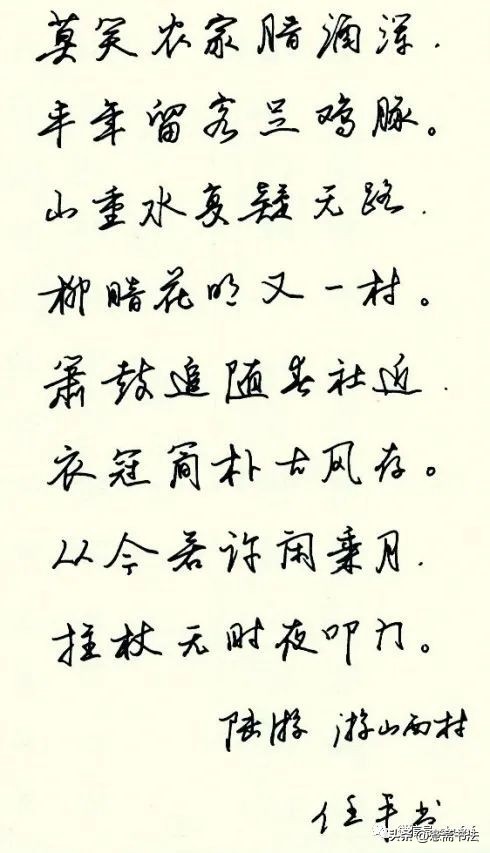 莫笑农家腊酒浑，
丰年留客足鸡豚。
山重水复疑无路，
柳暗花明又一村。
箫鼓追随春社近，
衣冠简朴古风存。
从今若许闲乘月，
拄杖无时夜叩门。
陆游 游山西村
任平书
头条 斋书法